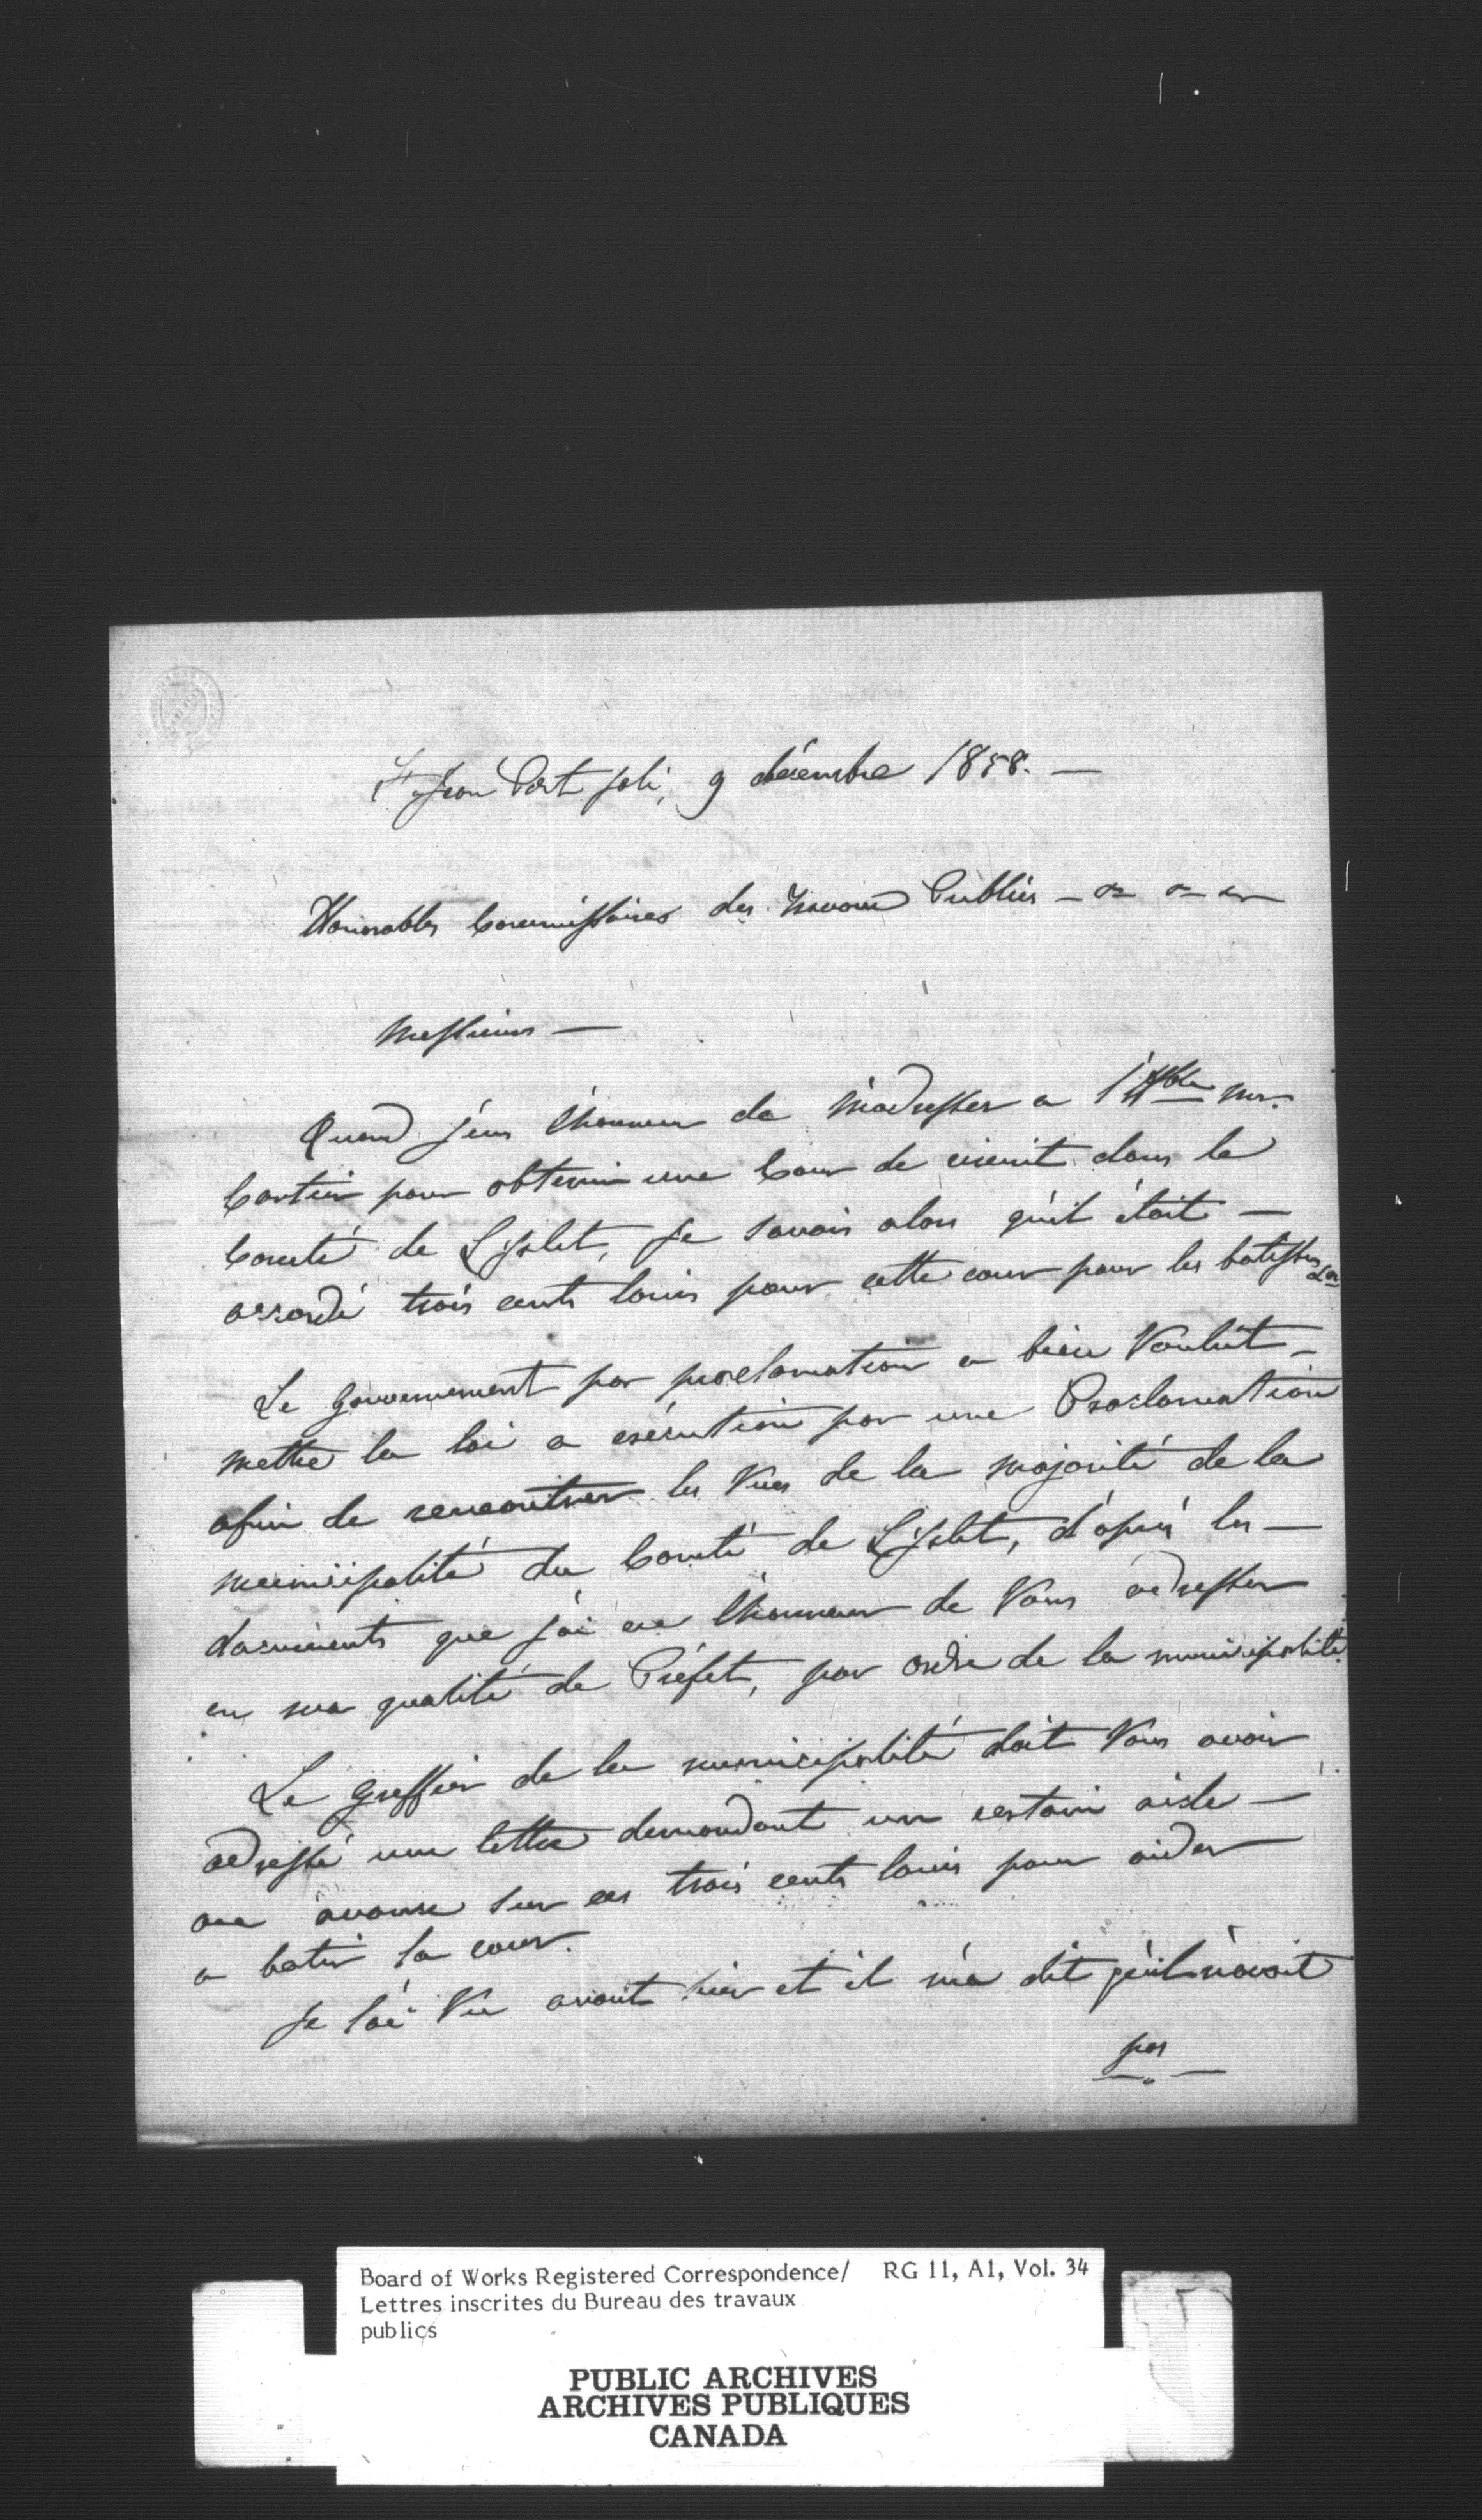 St Jean Port Joli, 9 décembre 1858. —
Honorables Commissaires des Travaux Publics — &c &c &c
Messieurs —
Quand j'eus l'honneur de m'adresser a l'Hble Mr.
Cartier pour obtenir une Cour de circuit dans le
Comté de L'Islet, je savais alors qu'il était —
accordé trois cents louis pour cette cour pour les batisses &c
Le Gouvernement par proclamation a bien Voulut —
mettre la loi a exécution par une Proclamation
afin de rencontrer les Vues de la majorité de la
municipalité du Comté de L'Islet, d'après les —
documents que j'ai eu l'honneur de Vous adresser
en ma qualité de Préfet, par ordre de la municipalité.
Le Greffier de la municipalité doit Vous avoir
adressé une lettre demandant un certain aide —
ou avance sur ces trois cents louis pour aider
a batir la cour.
Je l'ai Vu avant hier et il m'a dit qu'il n'avait
pas —
Board of Works Registered Correspondence/ RG 11, A1, Vol. 34
Lettres inscrites du Bureau des travaux
publics
PUBLIC ARCHIVES
ARCHIVES PUBLIQUES
CANADA